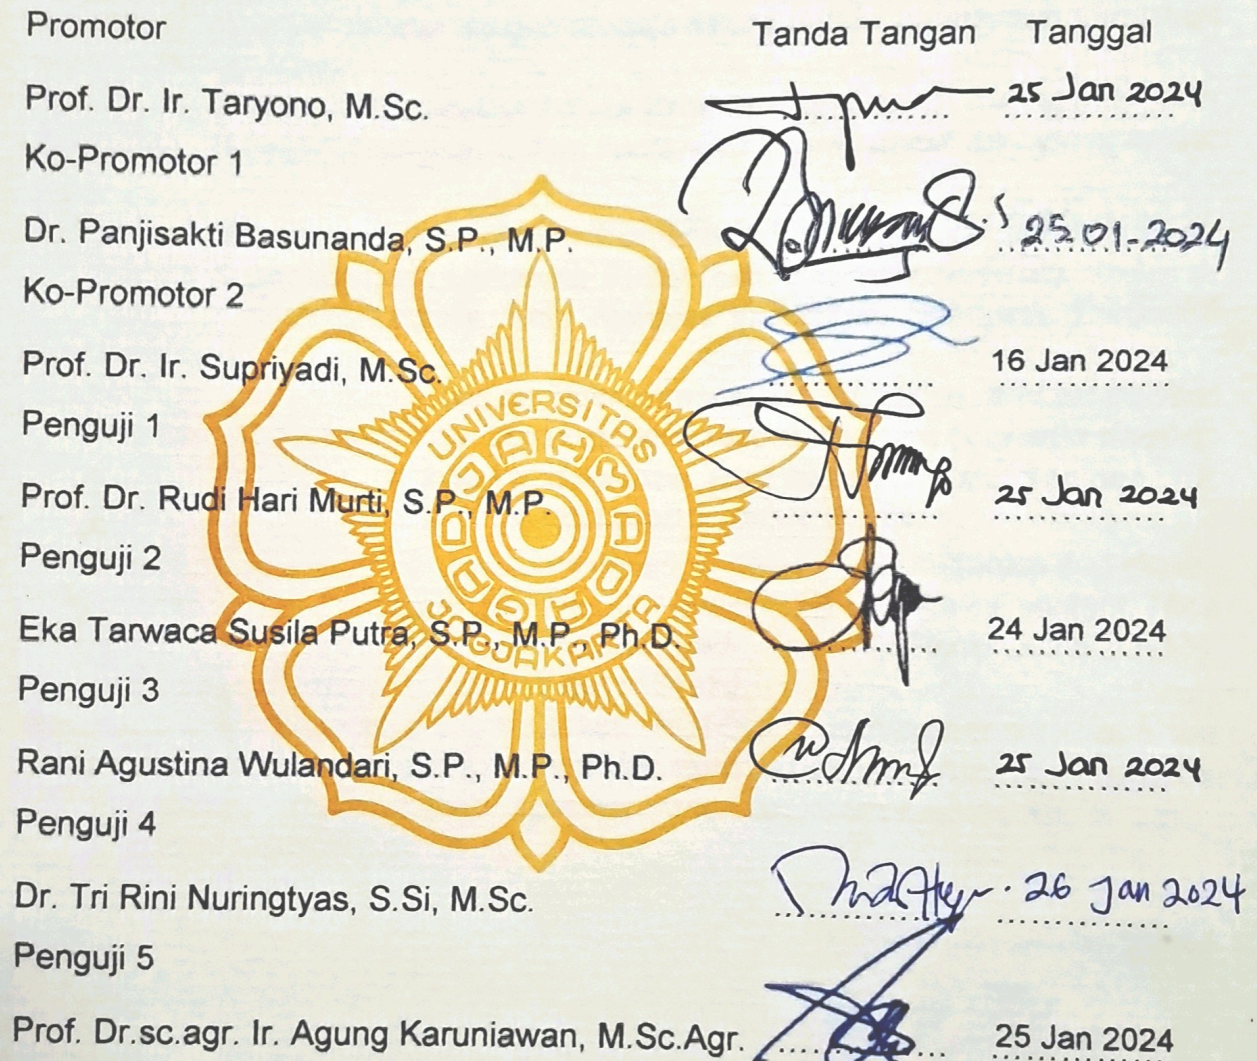 Promotor
Tanda Tangan Tanggal
Prof. Dr. Ir. Taryono, M.Sc. 25 Jan 2024
Ko-Promotor 1
Dr. Panjisakti Basunanda, S.P., M.P. 25.01-2024
Ko-Promotor 2
Prof. Dr. Ir. Supriyadi, M.Sc. 16 Jan 2024
Penguji 1
Prof. Dr. Rudi Hari Murti, S.P., M.P. 25 Jan 2024
Penguji 2
Eka Tarwaca Susila Putra, S.P., M.P., Ph.D. 24 Jan 2024
Penguji 3
Rani Agustina Wulandari, S.P., M.P., Ph.D. 25 Jan 2024
Penguji 4
Dr. Tri Rini Nuringtyas, S.Si, M.Sc. 26 Jan 2024
Penguji 5
Prof. Dr.sc.agr. Ir. Agung Karuniawan, M.Sc.Agr. 25 Jan 2024
UNIVERSITAS
GADJAH MADA
JOGJAKARTA